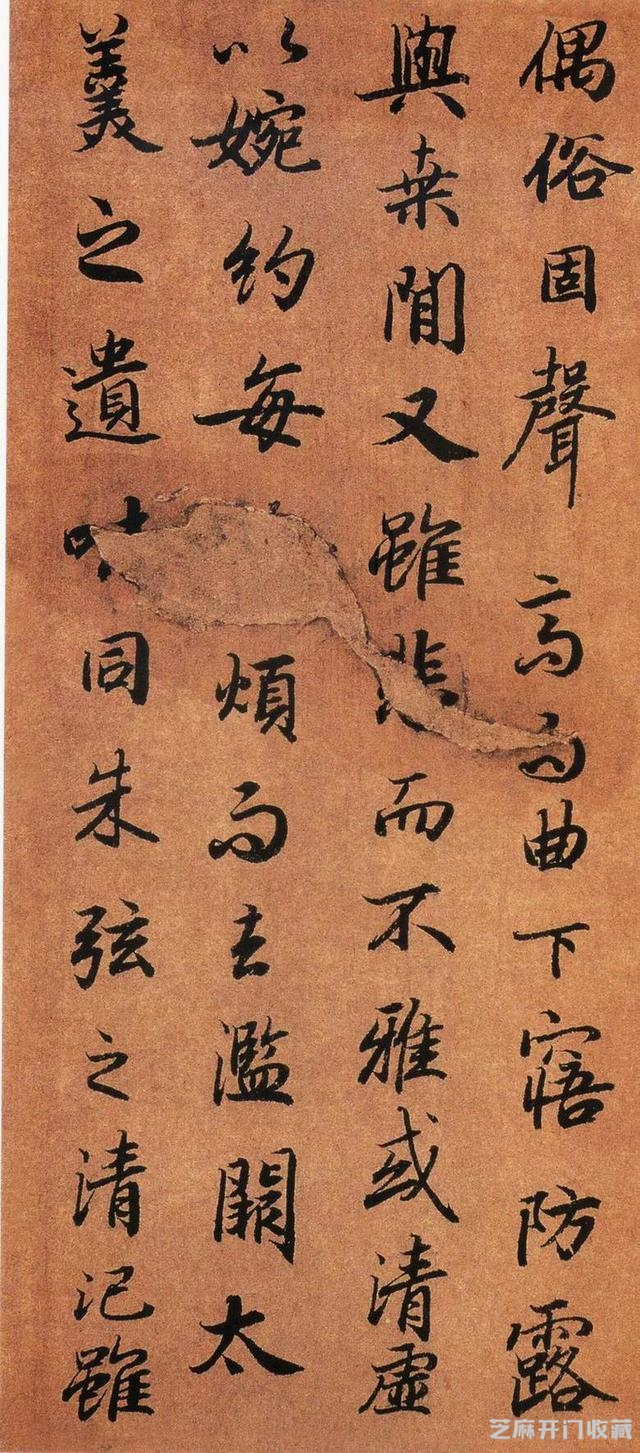 偶俗固聲高而曲下寤防露
與桒間又雖悲而不雅或清虛
以婉約每煩而去濫闕太
羹之遺味同朱弦之清汜雖
芝麻开门收藏